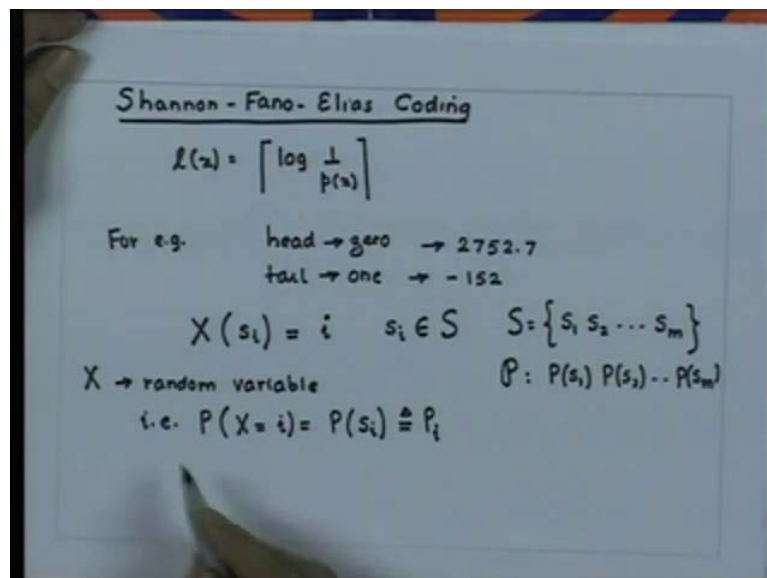 Shannon-Fano-Elias Coding
l(x) = ⌈log 1/p(x)⌉
For e.g. head → zero → 2752.7
tail → one → -152
X(s_i) = i s_i ∈ S S = {s_1 s_2 ... s_m}
X → random variable P: P(s_1) P(s_2) .. P(s_m)
i.e. P(X = i) = P(s_i) ≜ P_i